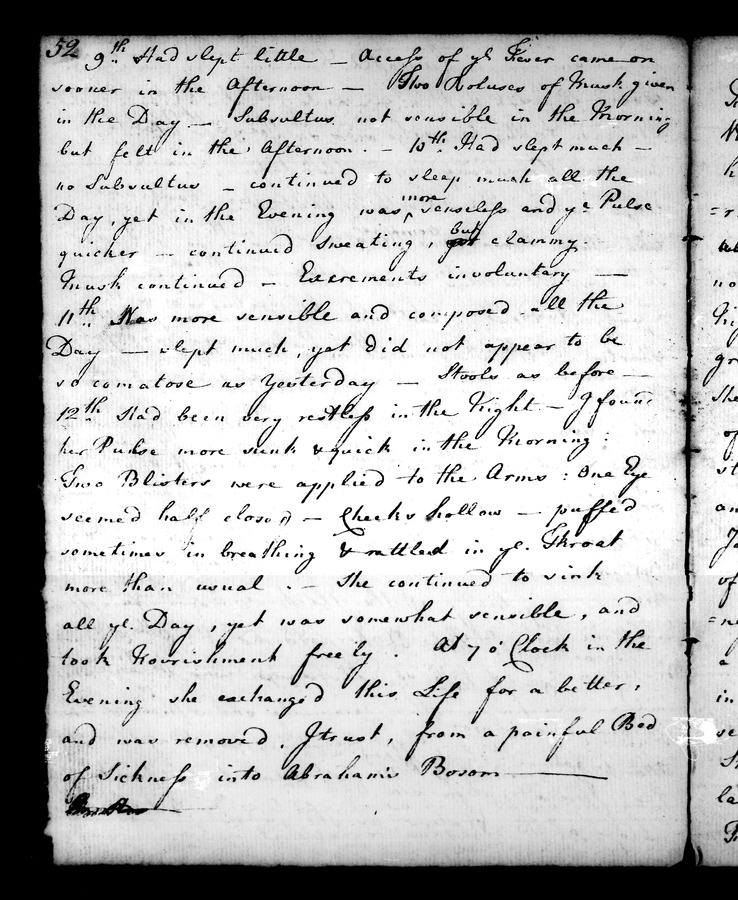 52
9th. Had slept little - Access of ye Fever came on
sooner in the Afternoon - Two Boluses of Musk given
in the Day - Subsultus not sensible in the Morning
but felt in the Afternoon. - 10th. Had slept much -
no Subsultus - continued to sleep much all the
Day, yet in the Evening was more senseless and ye Pulse
quicker - continued sweating, but clammy.
Musk continued - Excrements involuntary -
11th. Was more sensible and composed all the
Day - slept much, yet did not appear to be
so comatose as Yesterday - Stools as before -
12th. Had been very restless in the Night - I found
her Pulse more sunk & quick in the Morning:
Two Blisters were applied to the Arms: One Eye
seemed half closed - Cheeks hollow - puffed
sometimes in breathing & rattled in ye. Throat
more than usual. - She continued to sink
all ye. Day, yet was somewhat sensible, and
took Nourishment freely. At 7 o'Clock in the
Evening she exchanged this Life for a better,
and was removed, I trust, from a painful Bed
of Sickness into Abraham's Bosom -